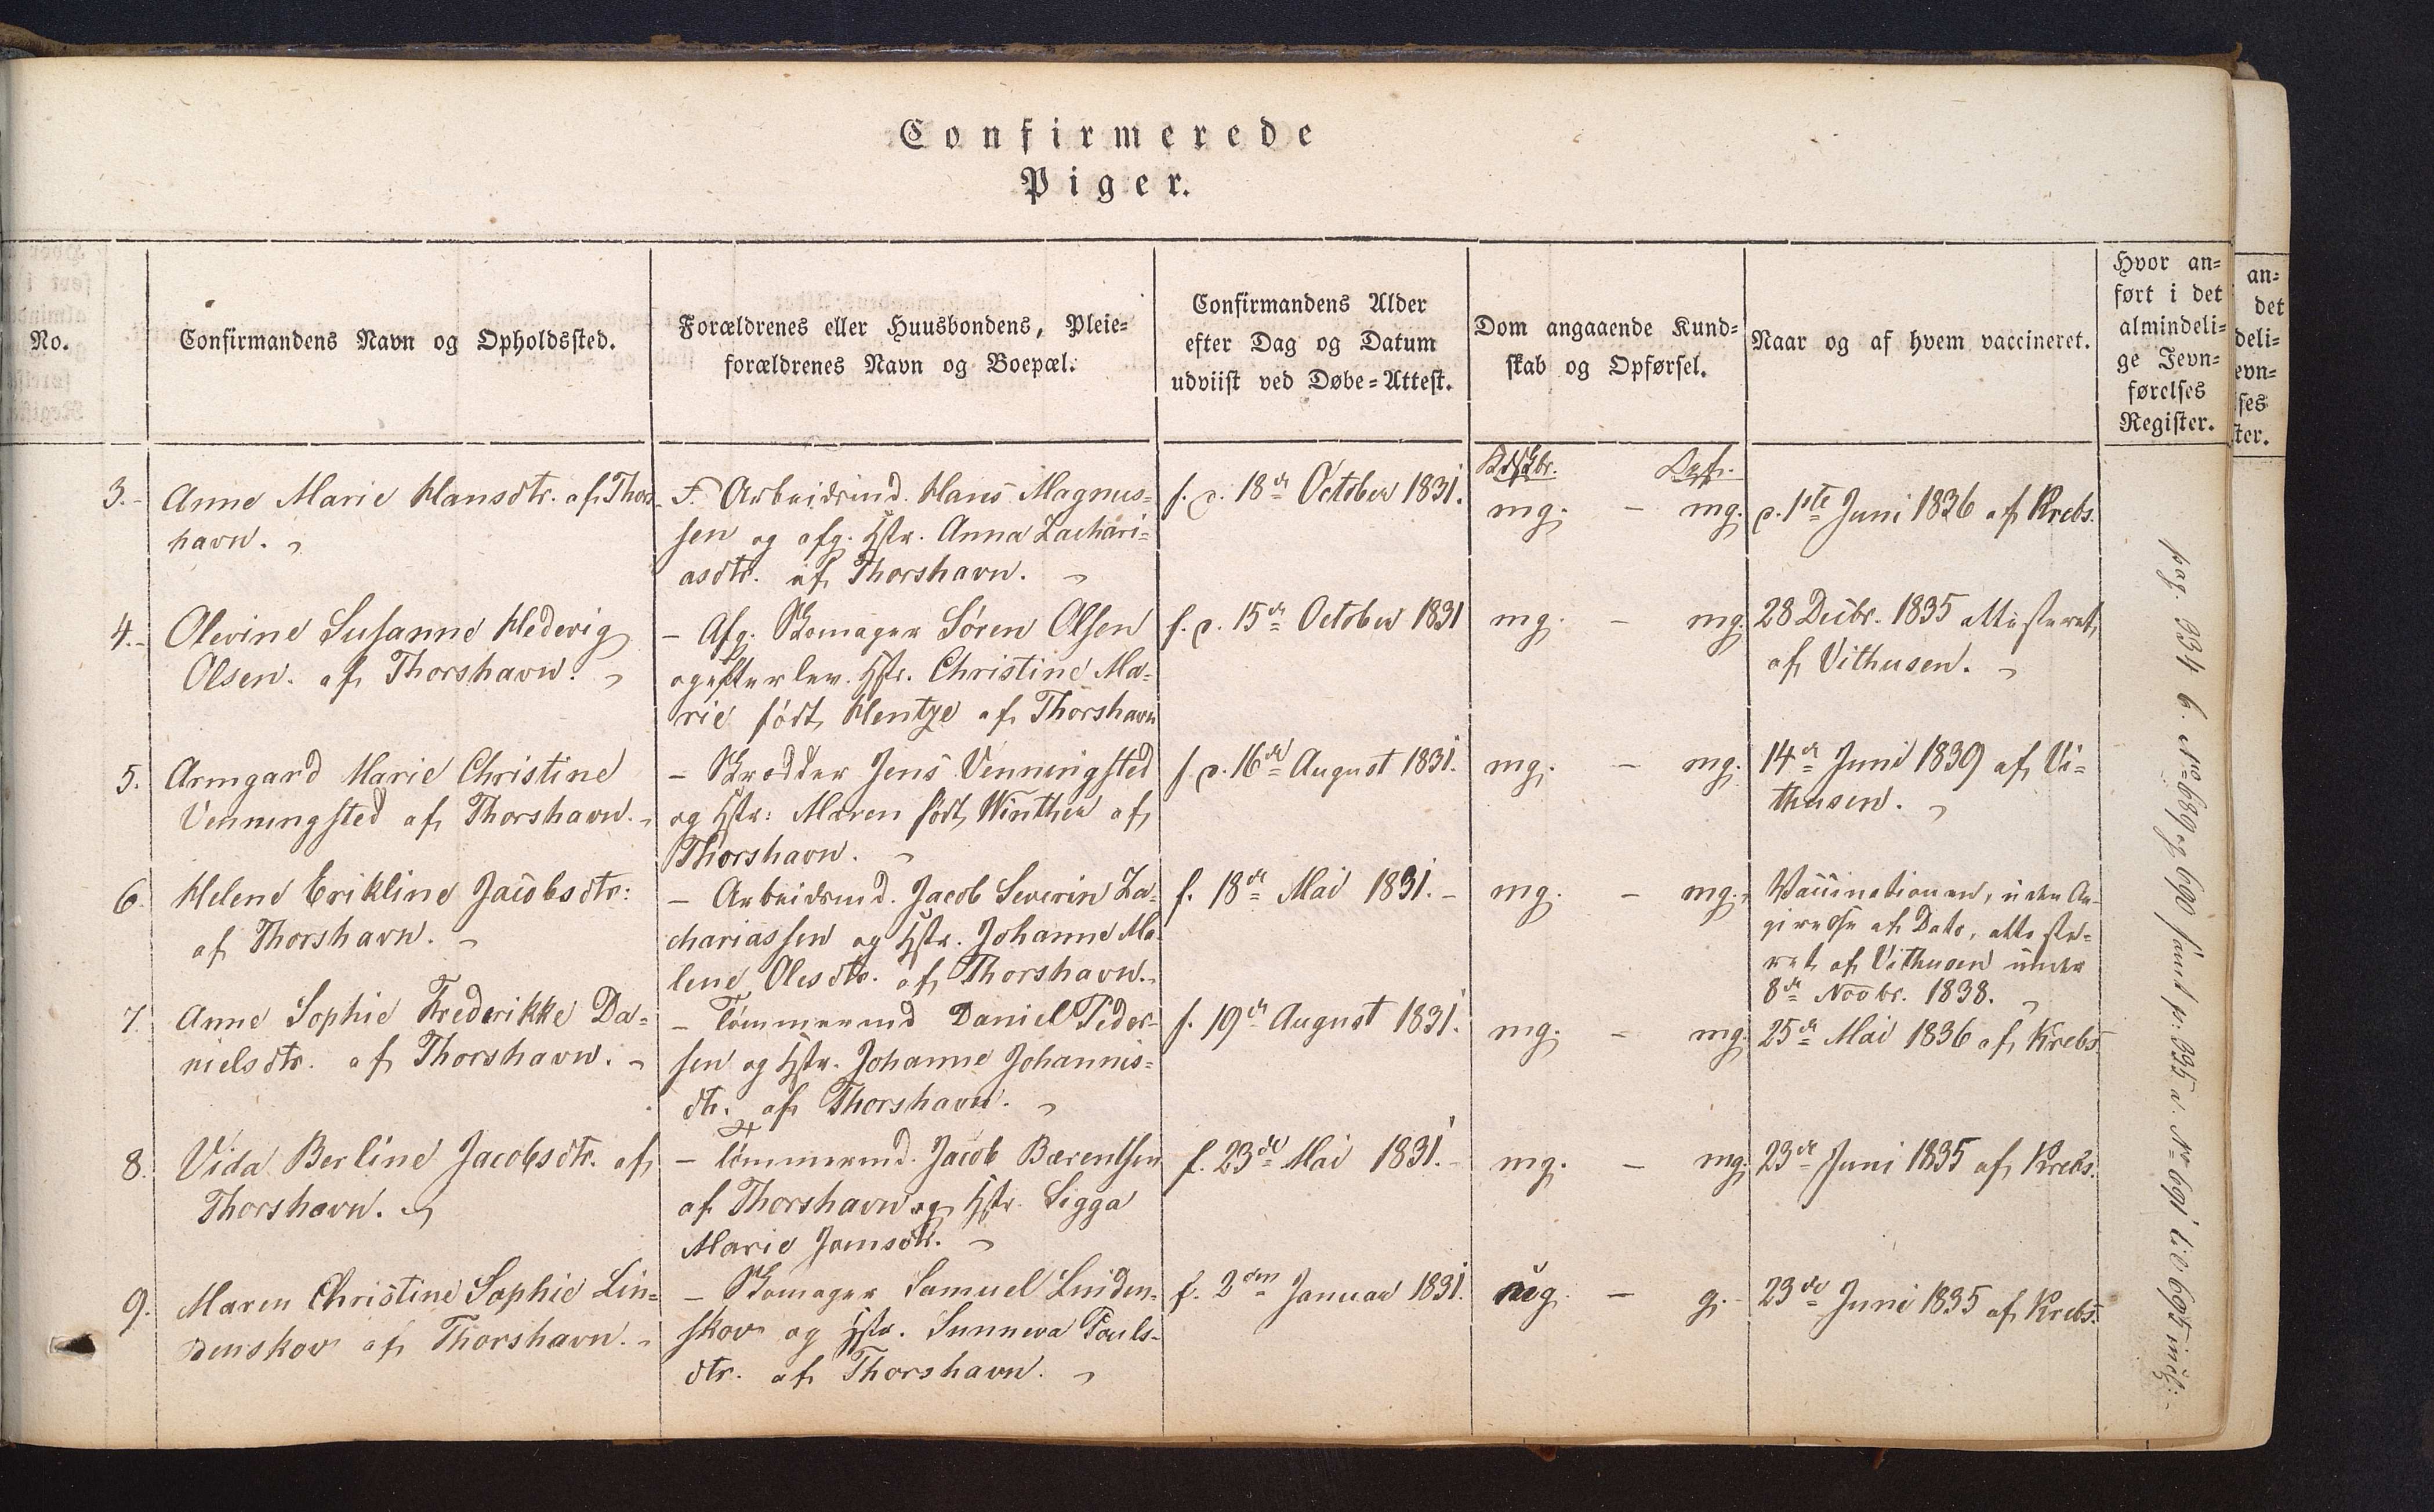 Confirmerede
Piger.
No.
Confirmandens Navn og Opholdssted.
Forældrenes eller Huusbondens, Pleie=
forældrenes Navn og Boepæl.
Confirmandens Alder
efter Dag og Datum
udviist ved Døbe=Attest.
Dom angaaende Kund=
skab og Opførsel.
Naar og af hvem vaccineret.
Hvor an=
ført i det
almindeli=
ge Jevn=
førelses
Register.
an=
det
deli=
evn=
ses
ter.
3.-
Anne Marie Hansdtr. af Thors
havn.
F. Arbeidsmd. Hans Magnus=
sen og afg. Hstr. Anna Zachari=
asdtr. af Thorshavn.
f. d. 18de October 1831.
Kdskbr. Opf.
mg. - mg.
d. 1ste Juni 1836 af Krebs.
4.-
Olevine Susanne Hedevig
Olsen. af Thorshavn.
- Afg. Skomager Søren Olsen
og efterlev. Hstr. Christine Ma=
rie født Hentze af Thorshavn
f. d. 15de October 1831
mg. - mg.
28 Decbr. 1835 attesteret
af Vithusen.
5.
Armgard Marie Christine
Venningsted af Thorshavn.
- Skrædder Jens Venningsted
og Hstr: Maren født Winther af
Thorshavn.
f. d. 16de August 1831.
mg. - mg.
14de Juni 1839 af Vi=
thusen.
6.
Helene Erikline Jacobsdtr:
af Thorshavn.
- Arbeidsmd. Jacob Severin Za=
chariassen og Hstr. Johanne Ma
lene Olesdtr. af Thorshavn.
f. 18de Mai 1831.-
mg. - mg.
Vaccinationen, uden An=
givelse af Dato, atteste=
ret af Vithusen under
8de Novbr. 1838.
7.
Anne Sophie Frederikke Da=
nielsdtr. af Thorshavn.
- Tømmermd Daniel Peder=
sen og Hstr. Johanne Johannis=
dtr. af Thorshavn.
f. 19de August 1831.
mg. - mg.
25de Mai 1836 af Krebs.
8.
Vida Berline Jacobsdtr. af
Thorshavn.
- Tømmermd. Jacob Bærentsen
af Thorshavn og Hstr. Sigga
Marie Joensdtr.
f. 23de Mai 1831.-
mg. - mg.
23de Juni 1835 af Krebs.
9.
Maren Christine Sophie Lin=
denskov af Thorshavn.
- Skomager Samuel Linden=
skov og Hstr. Sunneva Pouls=
dtr. af Thorshavn.
f. 2den Januar 1831.
ug. - g.
23de Juni 1835 af Krebs.
pag. 334 b. No 689 og 690 samt p: 335 a. No 691 til 695 incl: